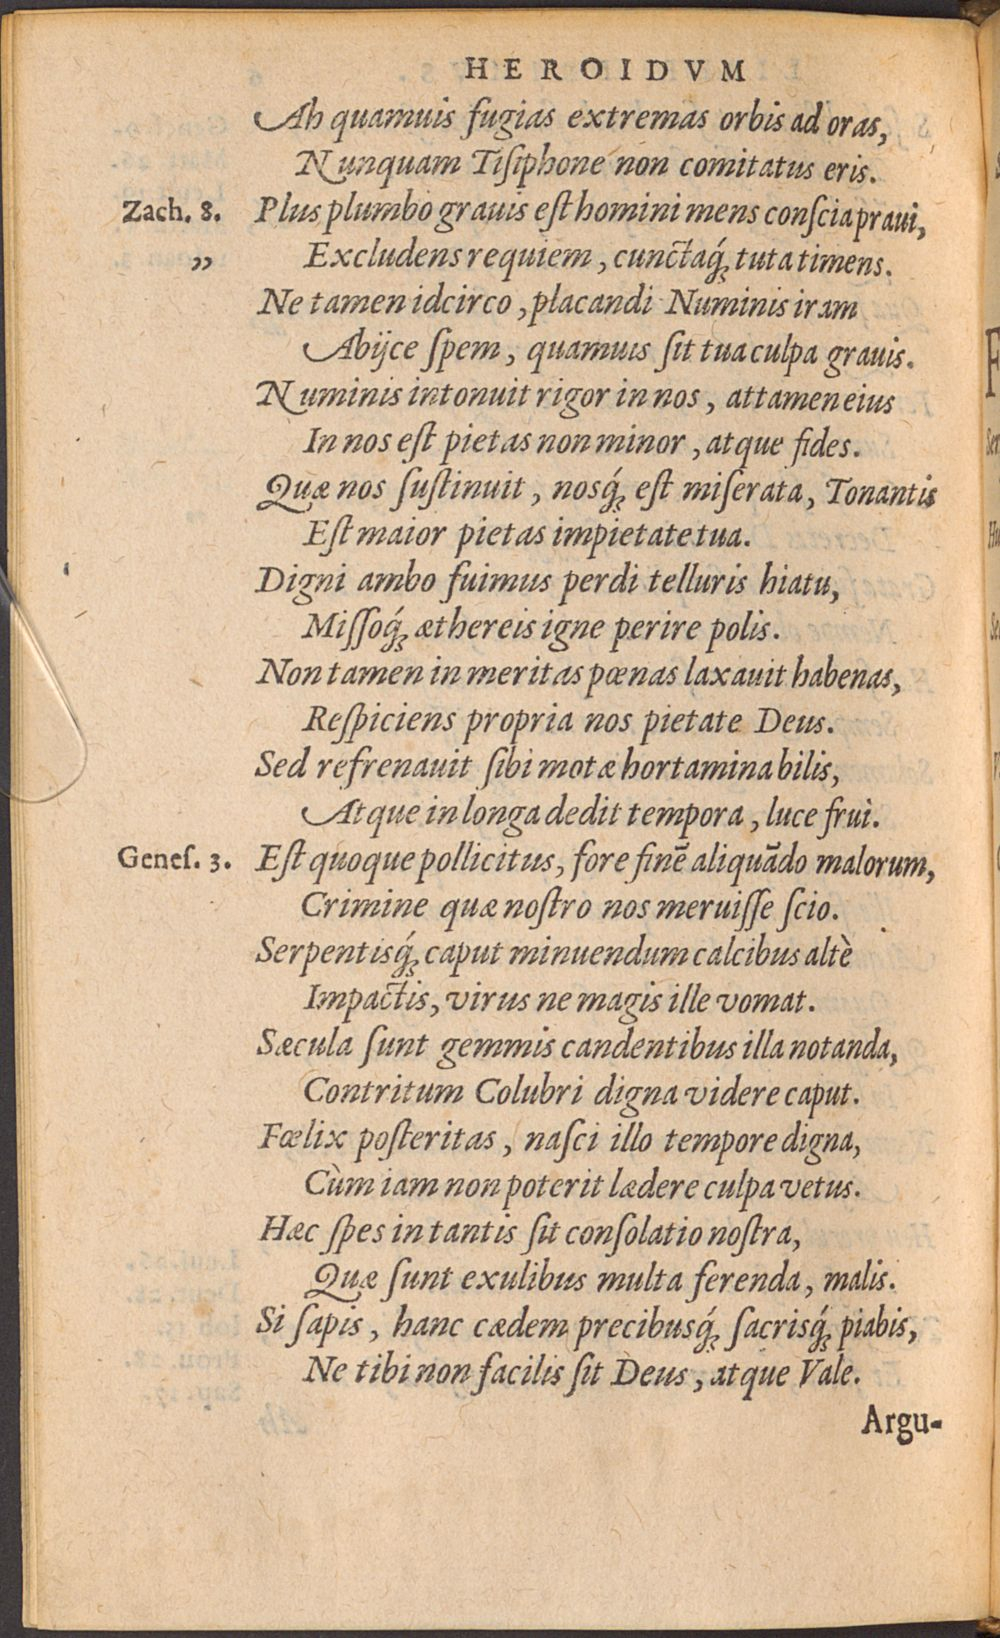 HEROIDVM
Ah quamuis fugias extremas orbis ad oras,
Nunquam Tiſiphone non comitatus eris.
Zach. 8. Plus plumbo grauis eſt homini mens conſcia praui,
„ Excludens requiem, cunctaq́ꝫ tuta timens.
Ne tamen idcirco, placandi Numinis iram
Abijce ſpem, quamuis ſit tua culpa grauis.
Numinis intonuit rigor in nos, attamen eius
In nos eſt pietas non minor, atque fides.
Quæ nos ſuſtinuit, nosq́ꝫ eſt miſerata, Tonantis
Eſt maior pietas impietate tua.
Digni ambo fuimus perdi telluris hiatu,
Miſſoq́ꝫ æthereis igne perire polis.
Non tamen in meritas pœnas laxauit habenas,
Reſpiciens propria nos pietate Deus.
Sed refrenauit ſibi motæ hortamina bilis,
Atque in longa dedit tempora, luce frui.
Geneſ. 3. Eſt quoque pollicitus, fore finē aliquādo malorum,
Crimine quæ noſtro nos meruiſſe ſcio.
Serpentisq́ꝫ caput minuendum calcibus altè
Impactis, virus ne magis ille vomat.
Sæcula ſunt gemmis candentibus illa notanda,
Contritum Colubri digna videre caput.
Fœlix poſteritas, naſci illo tempore digna,
Cùm iam non poterit lædere culpa vetus.
Hæc ſpes in tantis ſit conſolatio noſtra,
Quæ ſunt exulibus multa ferenda, malis.
Si ſapis, hanc cædem precibusq́ꝫ ſacrisq́ꝫ piabis,
Ne tibi non facilis ſit Deus, atque Vale.
Argu-